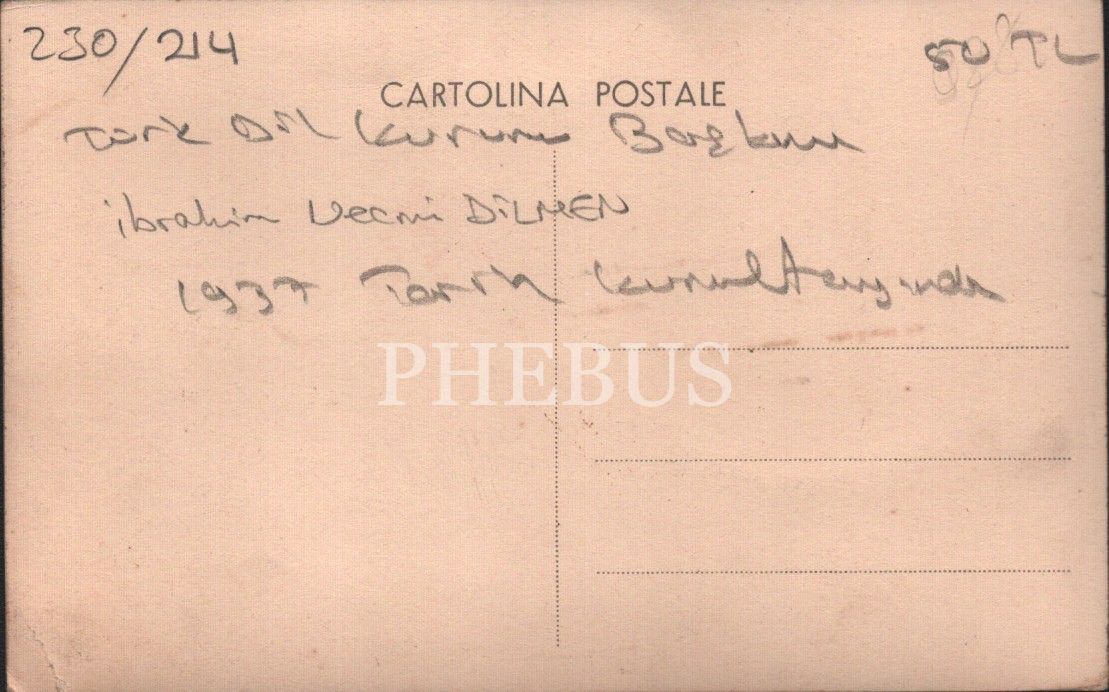 230/214
50 TL
CARTOLINA POSTALE
Türk Dil Kurumu Başkanı
İbrahim Necmi DİLMEN
1937 Tarih Kurultayında
PHEBUS